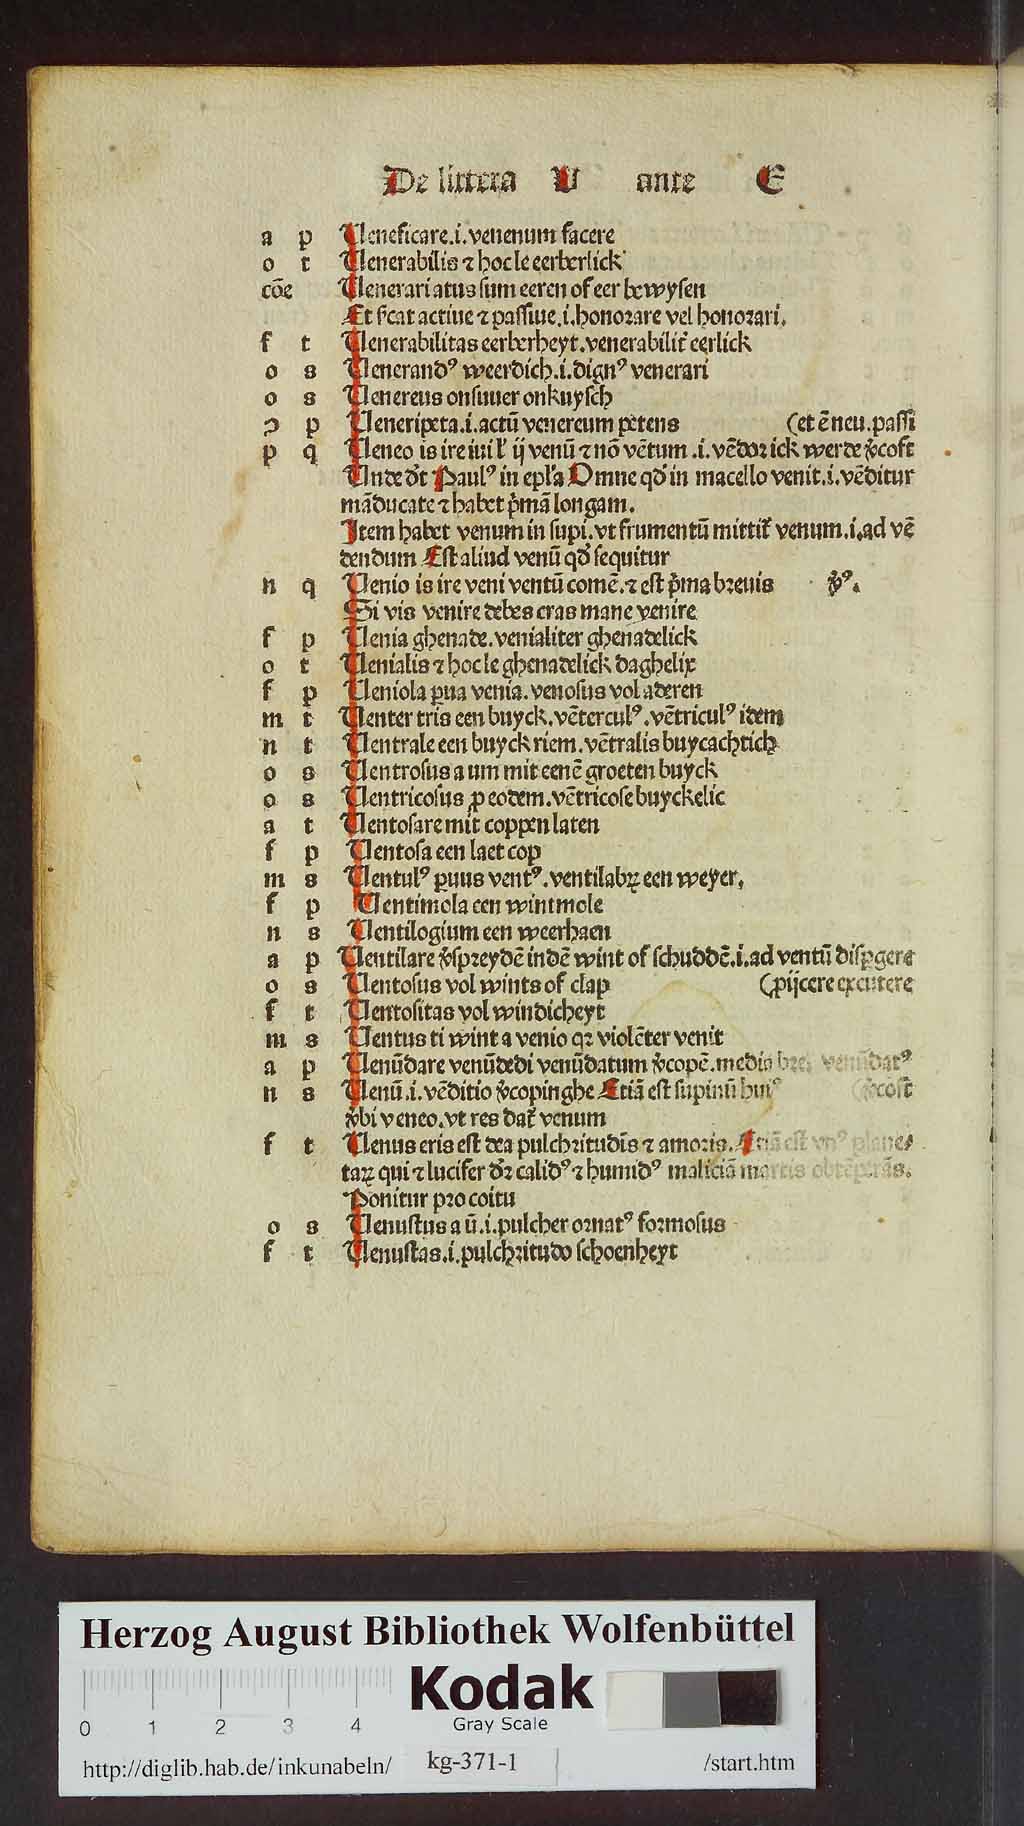 De littera V ante E
a p Veneficare.i.venenum facere
o t Venerabilis ⁊ hoc le eerberlick
cōe Venerari atus sum eeren of eer bewysen
Et sͥcat actiue ⁊ passiue.i.honorare vel honorari.
f t Venerabilitas eerberheyt.venerabilit᷑ eerlick
o s Venerandꝰ weerdich.i.dignꝰ venerari
o s Venereus onsuuer onkuysch
ɔ p Veneripeta.i.actū venereum petens (et ē neu.passi
p q Veneo is ire iui l' ij venū ⁊ nō vētum .i. vēdor ick werde v̓coft
Unde dt̄ Paulꝰ in epl'a Omne qd̓ in macello venit.i.vēditur
māducate ⁊ habet p̓mā longam.
Item habet venum in supi.vt frumentū mittit᷑ venum.i.ad vē
dendum Est aliud venū qd̓ sequitur
n q Venio is ire veni ventū comē.⁊ est p̓ma breuis v̓ꝰ.
Si vis venire debes cras mane venire
f p Venia ghenade.venialiter ghenadelick
o t Venialis ⁊ hoc le ghenadelick daghelix
f p Veniola ꝑua venia.venosus vol aderen
m t Venter tris een buyck.vēterculꝰ.vētriculꝰ idem
n t Ventrale een buyck riem.vētralis buycachtich
o s Ventrosus a um mit eenē groeten buyck
o s Ventricosus ꝓ eodem.vētricose buyckelic
a t Ventosare mit coppen laten
f p Ventosa een laet cop
m s Ventulꝰ ꝑuus ventꝰ.ventilabꝝ een weyer.
f p Ventimola een wintmole
n s Ventilogium een weerhaen
a p Ventilare v̓spreydē in dē wint of schuddē.i.ad ventū disꝑgere
o s Ventosus vol wints of clap (ꝓijcere excutere
f t Ventositas vol windicheyt
m s Ventus ti wint a venio qꝛ violēter venit
a p Venūdare venūdedi venūdatum v̓copē.media bre. venūdatꝰ
n s Venū.i.vēditio v̓copinghe Etiā est supinū huiꝰ (v̓cost
v̓bi veneo.vt res dat᷑ venum
f t Venus eris est dea pulchritudīs ⁊ amoris.Etiā est vnꝰ plane⸗
taꝝ qui ⁊ lucifer dꝛ calidꝰ ⁊ humidꝰ maliciā martis obtēperās.
Ponitur pro coitu
o s Venustus a ū.i.pulcher ornatꝰ formosus
f t Venustas.i.pulchritudo schoenheyt
Herzog August Bibliothek Wolfenbüttel
Kodak
0 1 2 3 4 Gray Scale
http://diglib.hab.de/inkunabeln/ kg-371-1 /start.htm